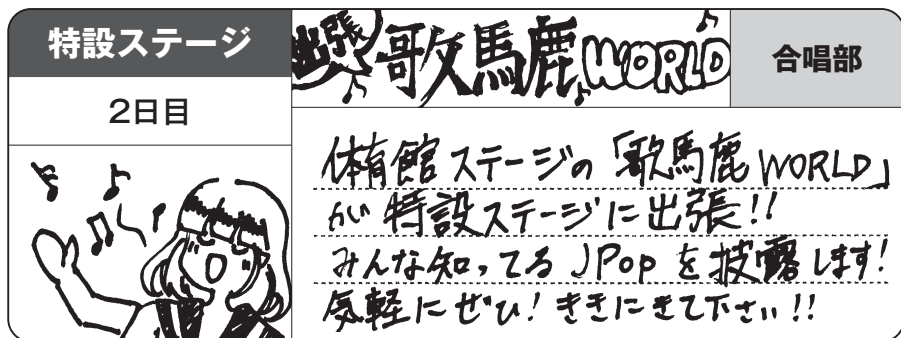 特設ステージ
2日目
出張 歌馬鹿WORLD
合唱部
体育館ステージの「歌馬鹿WORLD」
が特設ステージに出張!!
みんな知ってるJPopを披露します!
気軽にぜひ!ききにきて下さい!!